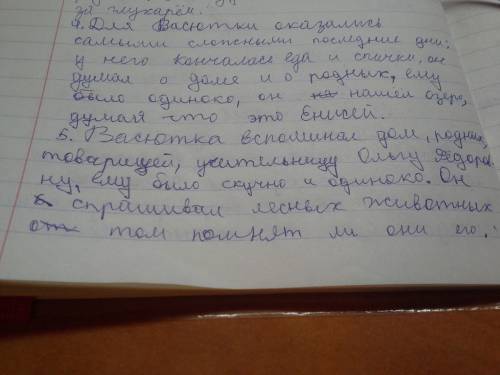 за глухарём.
4. Для Васютки оказались
самыми сложными последние дни:
у него кончалась еда и спички, он
думал о доме и о родных, ему
было одиноко, он нашёл озеро,
думая что это Енисей.
5. Васютка вспоминал дом, родных,
товарищей, учительницу Ольгу Фёдоров
ну, ему было скучно и одиноко. Он
спрашивал лесных животных
том помнят ли они его.